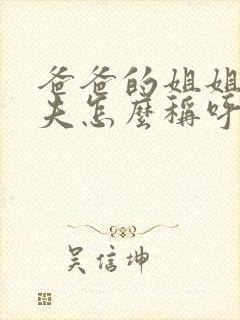 爸爸的姐姐
夫怎麼稱呼
吳信坤